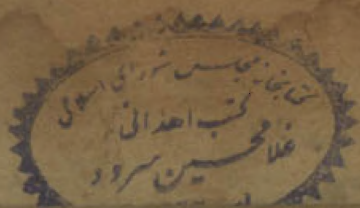 کتابخانه مجلس شورای اسلامی
کتب اهدائی
غلامحسین سرود